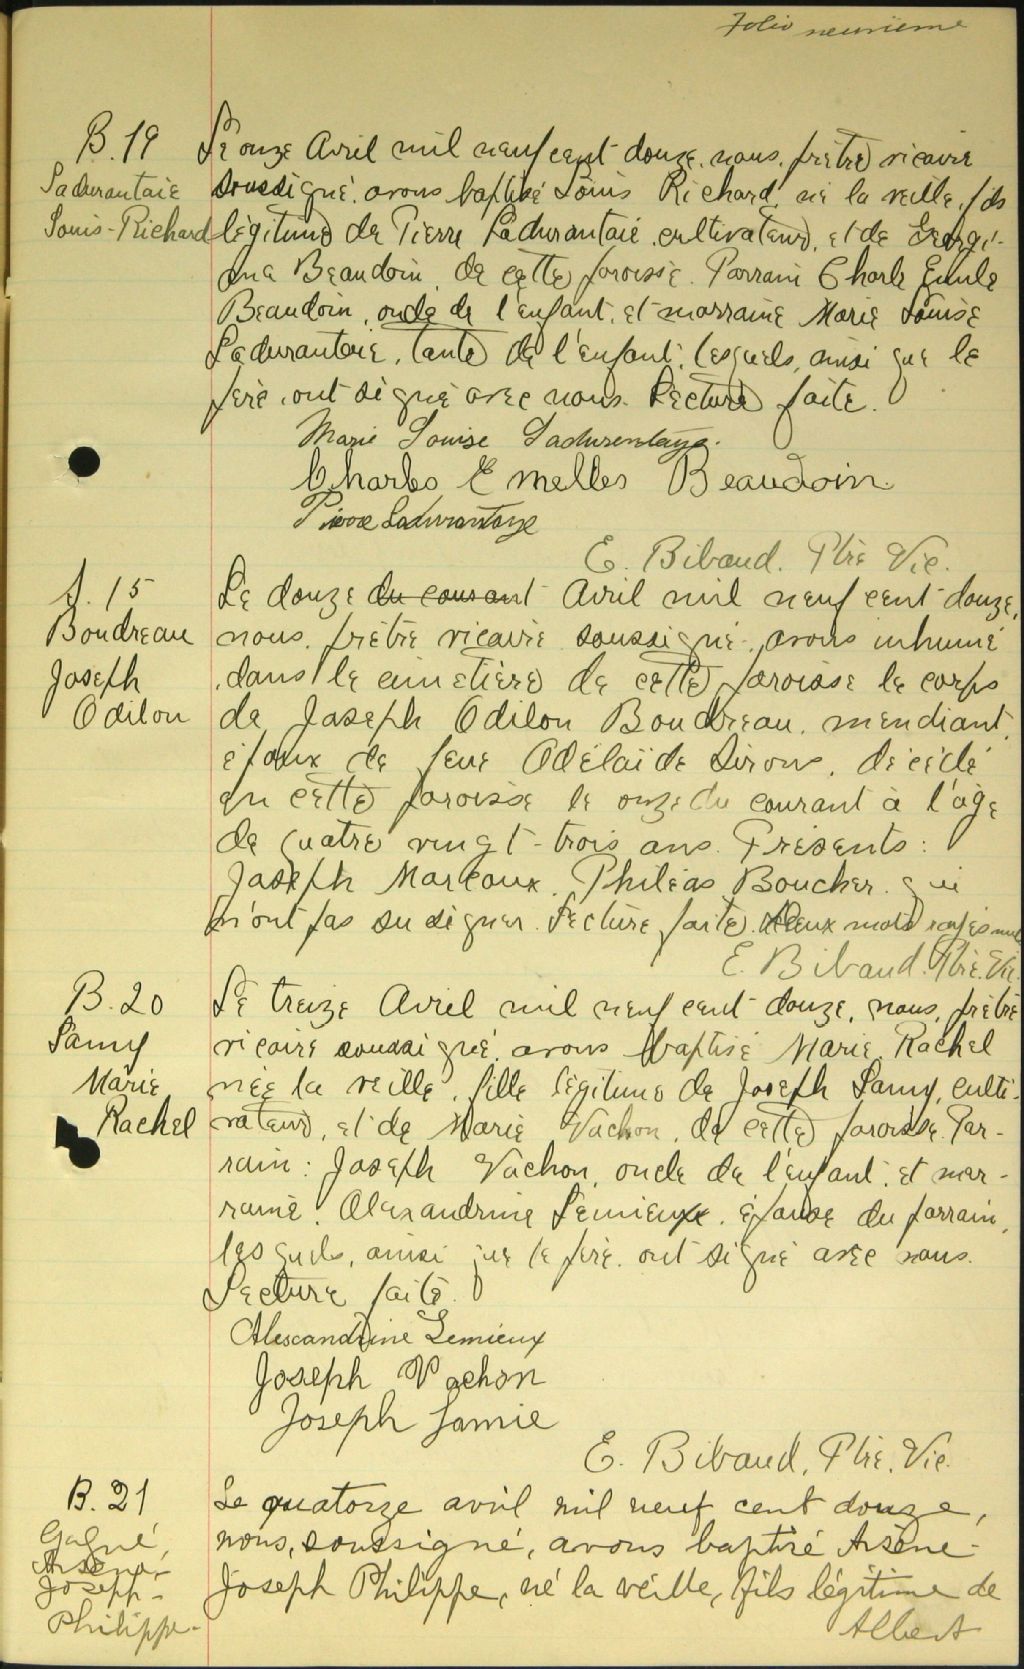 Folio neuvième
B. 19
Ladurantaie
Louis-Richard
Le onze Avril mil neuf cent douze, nous, prêtre vicaire
soussigné, avons baptisé Louis Richard, né la veille, fils
légitime de Pierre Ladurantaie, cultivateur, et de Georgi-
ana Beaudoin, de cette paroisse. Parrain Charle Emile
Beaudoin, oncle de l'enfant, et marraine Marie Louise
Ladurantaie, tante de l'enfant, lesquels, ainsi que le
père, ont signé avec nous. Lecture faite.
Marie Louise Ladurentaye.
Charles Emelles Beaudoin
Pierre Ladurantaye
E. Bibaud. Ptre Vic.
S. 15
Boudreau
Joseph
Odilon
Le douze du courant Avril mil neuf cent douze,
nous, prêtre vicaire soussigné, avons inhumé
dans le cimetière de cette paroisse le corps
de Joseph Odilon Boudreau, mendiant,
époux de feue Adélaïde Sirois, décédé
en cette paroisse le onze du courant à l'âge
de quatre vingt-trois ans. Présents:
Joseph Marcoux, Philéas Boucher qui
n'ont pas su signer. Lecture faite. Deux mots rayés nuls
E. Bibaud. Ptre. Vic.
B. 20
Lamy
Marie
Rachel
Le treize Avril mil neuf cent douze, nous, prêtre
vicaire soussigné, avons baptisé Marie Rachel
née la veille, fille légitime de Joseph Lamy, culti-
vateur, et de Marie Vachon, de cette paroisse. Par-
rain: Joseph Vachon, oncle de l'enfant, et mar-
raine, Alexandrine Lemieux, épouse du parrain,
lesquels, ainsi que le père, ont signé avec nous.
Lecture faite.
Alexcandrine Lemieux
Joseph Vachon
Joseph Lamie
E. Bibaud, Ptre, Vic.
B. 21
Gagné,
Arsène,-
Joseph-
Philippe-
Le quatorze avril mil neuf cent douze,
nous, soussigné, avons baptisé Arsène-
Joseph Philippe, né la veille, fils légitime de
Albert